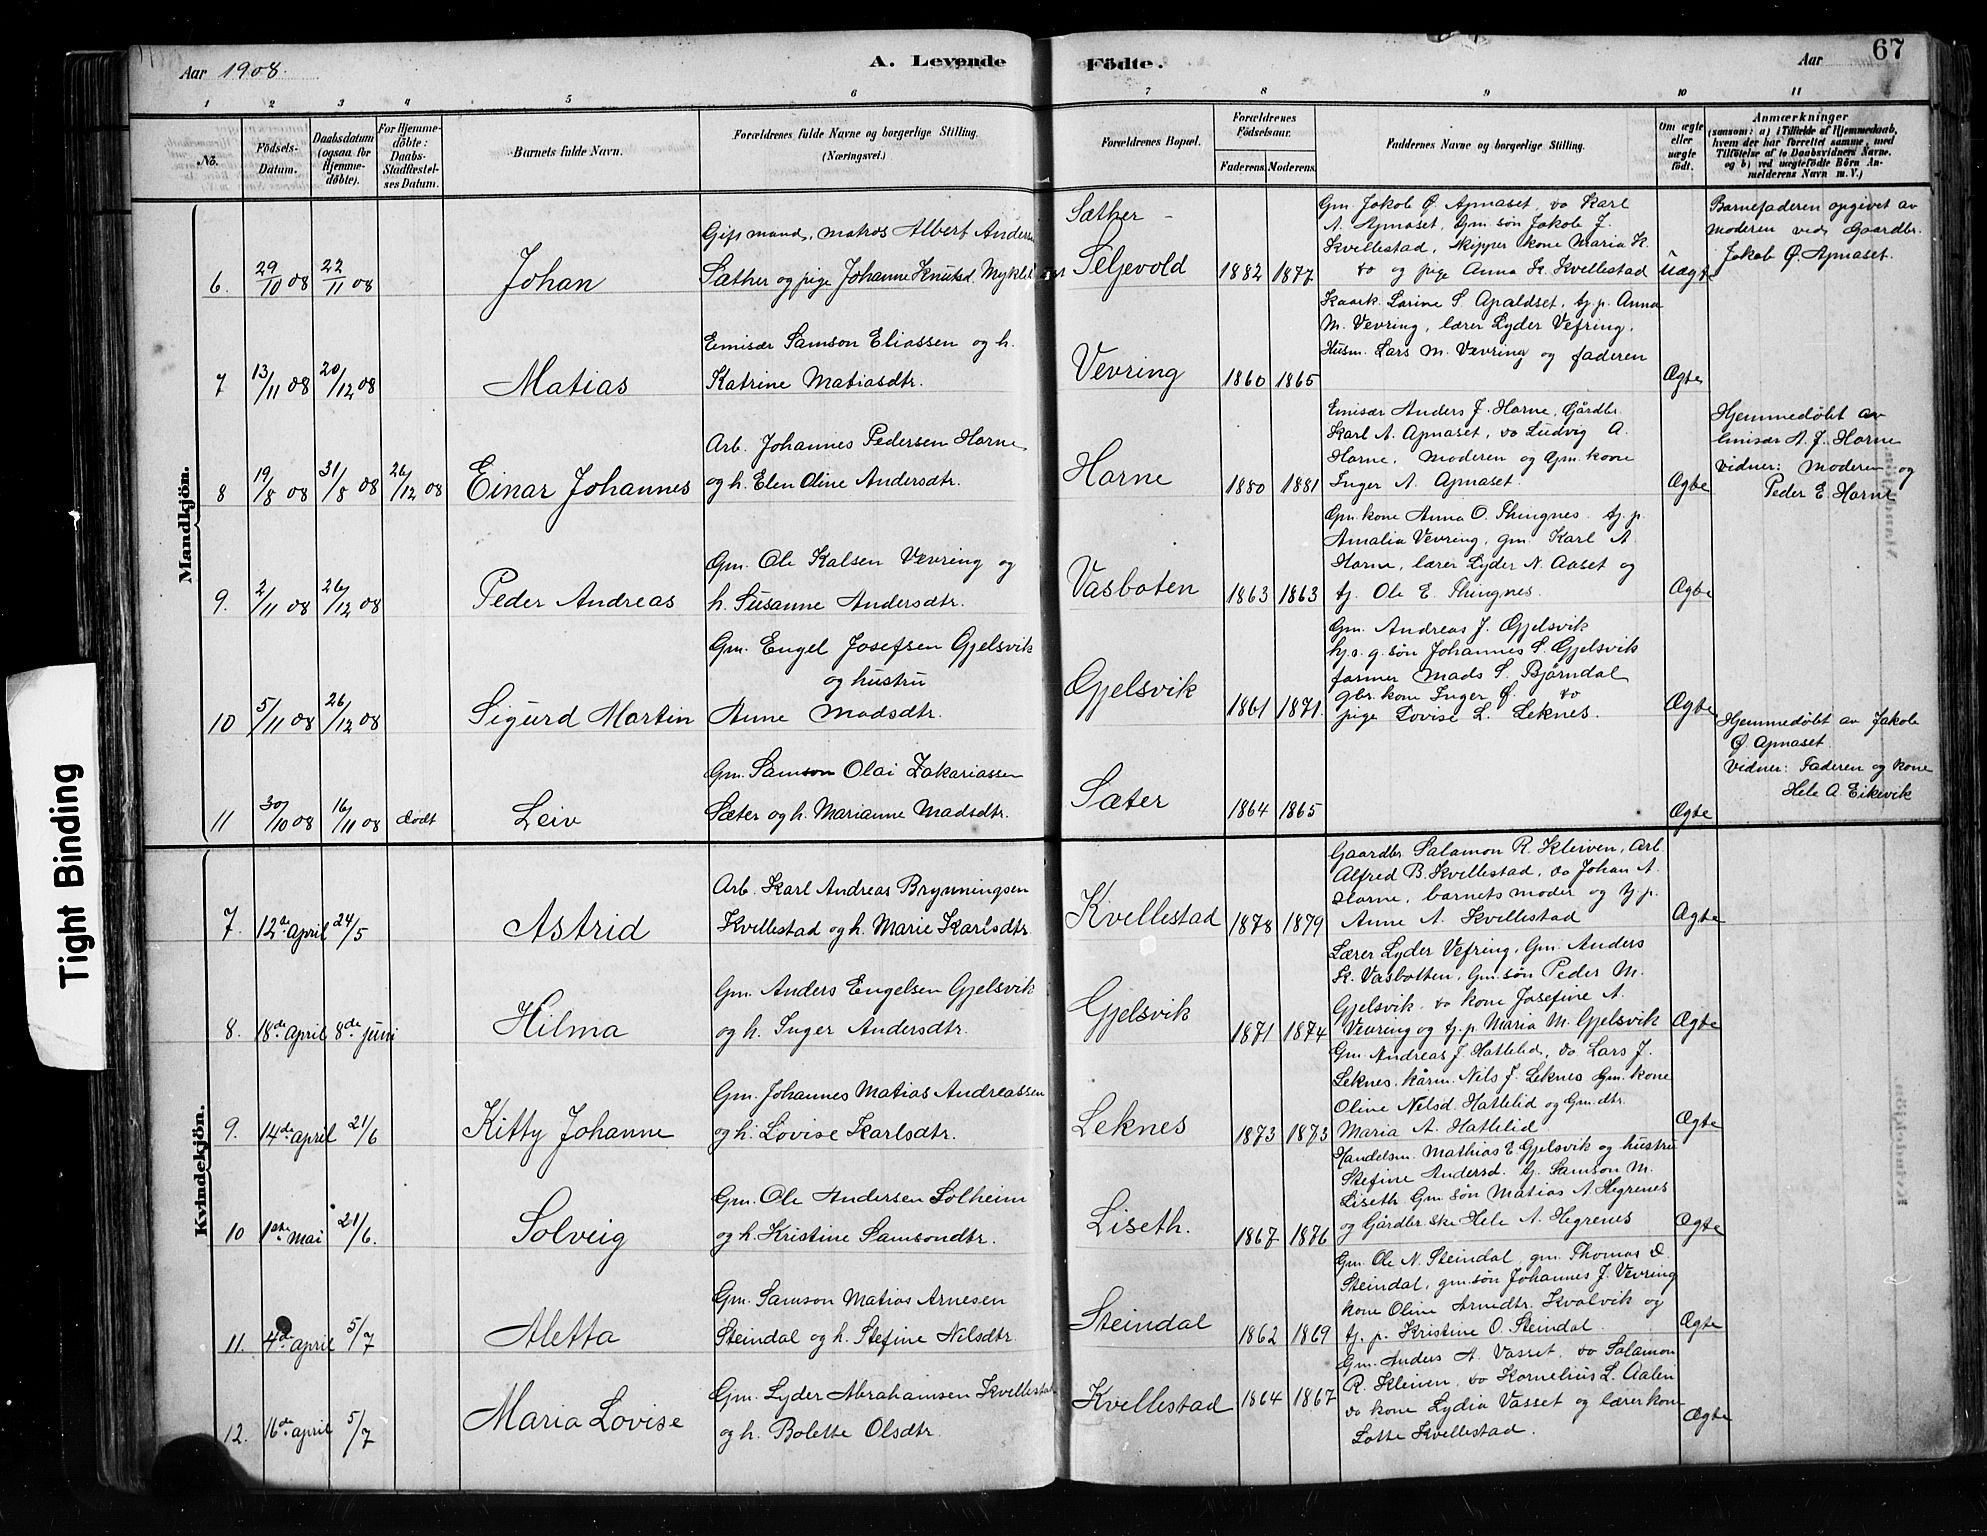 Aar 1908.
A. Levende Födte.
Aar
67
1 2 3 4 5 6 7 8 9 10 11
No.
Födsels-Datum.
Daabsdatum (ogsaa for Hjemmedöbte).
For Hjemmedöbte: Daabs-Stadfæstelses Datum.
Barnets fulde Navn.
Forældrenes fulde Navne og borgerlige Stilling.
(Næringsvei.)
Forældrenes Bopæl.
Forældrenes Födselsaar.
Faderens. Moderens.
Faddernes Navne og borgerlige Stilling.
Om ægte eller uægte födt.
Anmærkninger
(saasom: a) i Tilfælde af Hjemmedaab, hvem der har forrettet samme, med Tilföielse af to Daabsvidners Navne. og b) ved uægtefödte Börn Anmelderens Navn m. V.)
Mandkjön.
6. 29/10 08 22/11 08
Johan
Gift mand, matros Albert Anders
Sæther og pige Johanne Knutsd. Mykle
Sæther -
Seljevold
1882 1877
Gm. Jakob Ø. Apnaset, do Karl
A. Apnaset, Gm. søn Jakob J.
Kvellestad, skipper kone Maria K.
do og pige Anna K. Kvellestad
Uægte
Barnefaderen opgivet av
moderen ved Gaardbr.
Jakob Ø. Apnaset.
7 13/11 08 20/12 08
Matias
Emisær Samson Eliassen og h.
Katrine Matiasdtr.
Vevring
1860 1865
Kaark. Larine S. Apaldset, tj. p. Anna
M. Vevring, lærer Lyder Vefring,
Husm. Lars M. Vævring og faderen
Ægte
8 19/8 08 31/8 08 26/12 08
Einar Johannes
Arb. Johannes Pedersen Horne
og h. Elen Oline Andersdtr.
Horne
1880 1881
Emisær Anders J. Horne, Gårdbr.
Karl A. Apnaset, do Ludvig A.
Horne, Moderen og Gm. kone
Inger A. Apnaset.
Ægte
Hjemmedøbt av
Emisær A. J. Horne
Vidner: Moderen og
Peder E. Horne
9. 2/11 08 26/12 08
Peder Andreas
Gm. Ole Kalsen Vevring og
h. Susanne Andersdtr.
Vasboten
1863 1863
Gm. kone Anna O. Thingnes, tj. p.
Amalia Vevring, gm. Karl A.
Horne, lærer Lyder N. Aaset og
tj. Ole E. Thingnes.
Ægte
10 5/11 08 26/12 08
Sigurd Martin
Gm. Engel Josefsen Gjelsvik
og hustru
Anne Madsdtr.
Gjelsvik
1861 1871
Gm. Andreas J. Gjelsvik
hj.s. g. søn Johannes S. Gjelsvik
farmer Mads S. Bjørndal
gbr. kone Inger Ø. do
pige Lovise L. Leknes.
Ægte
11 30/10 08 16/11 08 dødt
Leiv
Gm. Samson Olai Zakariassen
Sæter og h. Marianne Madsdtr.
Sæter
1864 1865
Ægte
Hjemmedøbt av Jakob
Ø. Apnaset.
Vidner: Faderen og kone
Hele A. Eikevik
Kvindekjön.
7. 12de april 24/5
Astrid
Arb. Karl Andreas Brynningsen
Kvellestad og h. Marie Karlsdtr.
Kvellestad
1878 1879
Gaardbr. Salamon R. Kleiven, Arb.
Alfred B. Kvellestad, do Johan A.
Horne, barnets moder og tj. p.
Anne A. Kvellestad
Ægte
8. 18de april 8de juni
Hilma
Gm. Anders Engelsen Gjelsvik
og h. Inger Andersdtr.
Gjelsvik
1871 1874
Lærer Lyder Vefring, Gm. Anders
K. Vasbotten, Gm. søn Peder M.
Gjelsvik, do kone Josefine A.
Vevring og tj. p. Maria M. Gjelsvik
Ægte
9. 14de april 21/6
Kitty Johanne
Gm. Johannes Matias Andreassen
og h. Lovise Karlsdtr.
Leknes
1873 1873
Gm. Andreas J. Hatlelid, do Lars J.
Leknes, kårm. Nils J. Leknes Gm. kone
Oline Nelsd. Hatlelid og Gm. dtr.
Maria A. Hatlelid
Ægte
10 1ste Mai 21/6.
Solveig
Gm. Ole Andersen Solheim
og h. Kristine Samsondtr.
Liseth.
1867 1876
Handelsm. Mathias E Gjelsvik og hustru
Stefine Andersd. tj. Samson M.
Liseth Gm. søn Matias A. Hegrenes
og Gårdbr. ske Hele A. Hegrenes
Ægte
11. 4de april 5/7
Aletta
Gm. Samson Matias Arnesen
Steindal og h. Stefine Nilsdtr
Steindal
1862 1869
Gm. Ole N. Steindal, gm. Thomas D.
Steindal, gm. søn Johannes J. Vevring
kone Oline Arnedtr. Kvalvik og
tj. p. Kristine O. Steindal.
Ægte
12. 16de april 5/7
Maria Lovise
Gm. Lyder Abrahamsen Kvellestad
og h. Bolette Olsdtr.
Kvellestad
1864 1867
Gm. Anders A. Vasset, do Salamon
R. Kleiven, do Kornelius L. Aalen
do kone Lydia Vasset og lærerkone
Lotte Kvellestad.
Ægte
Tight Binding